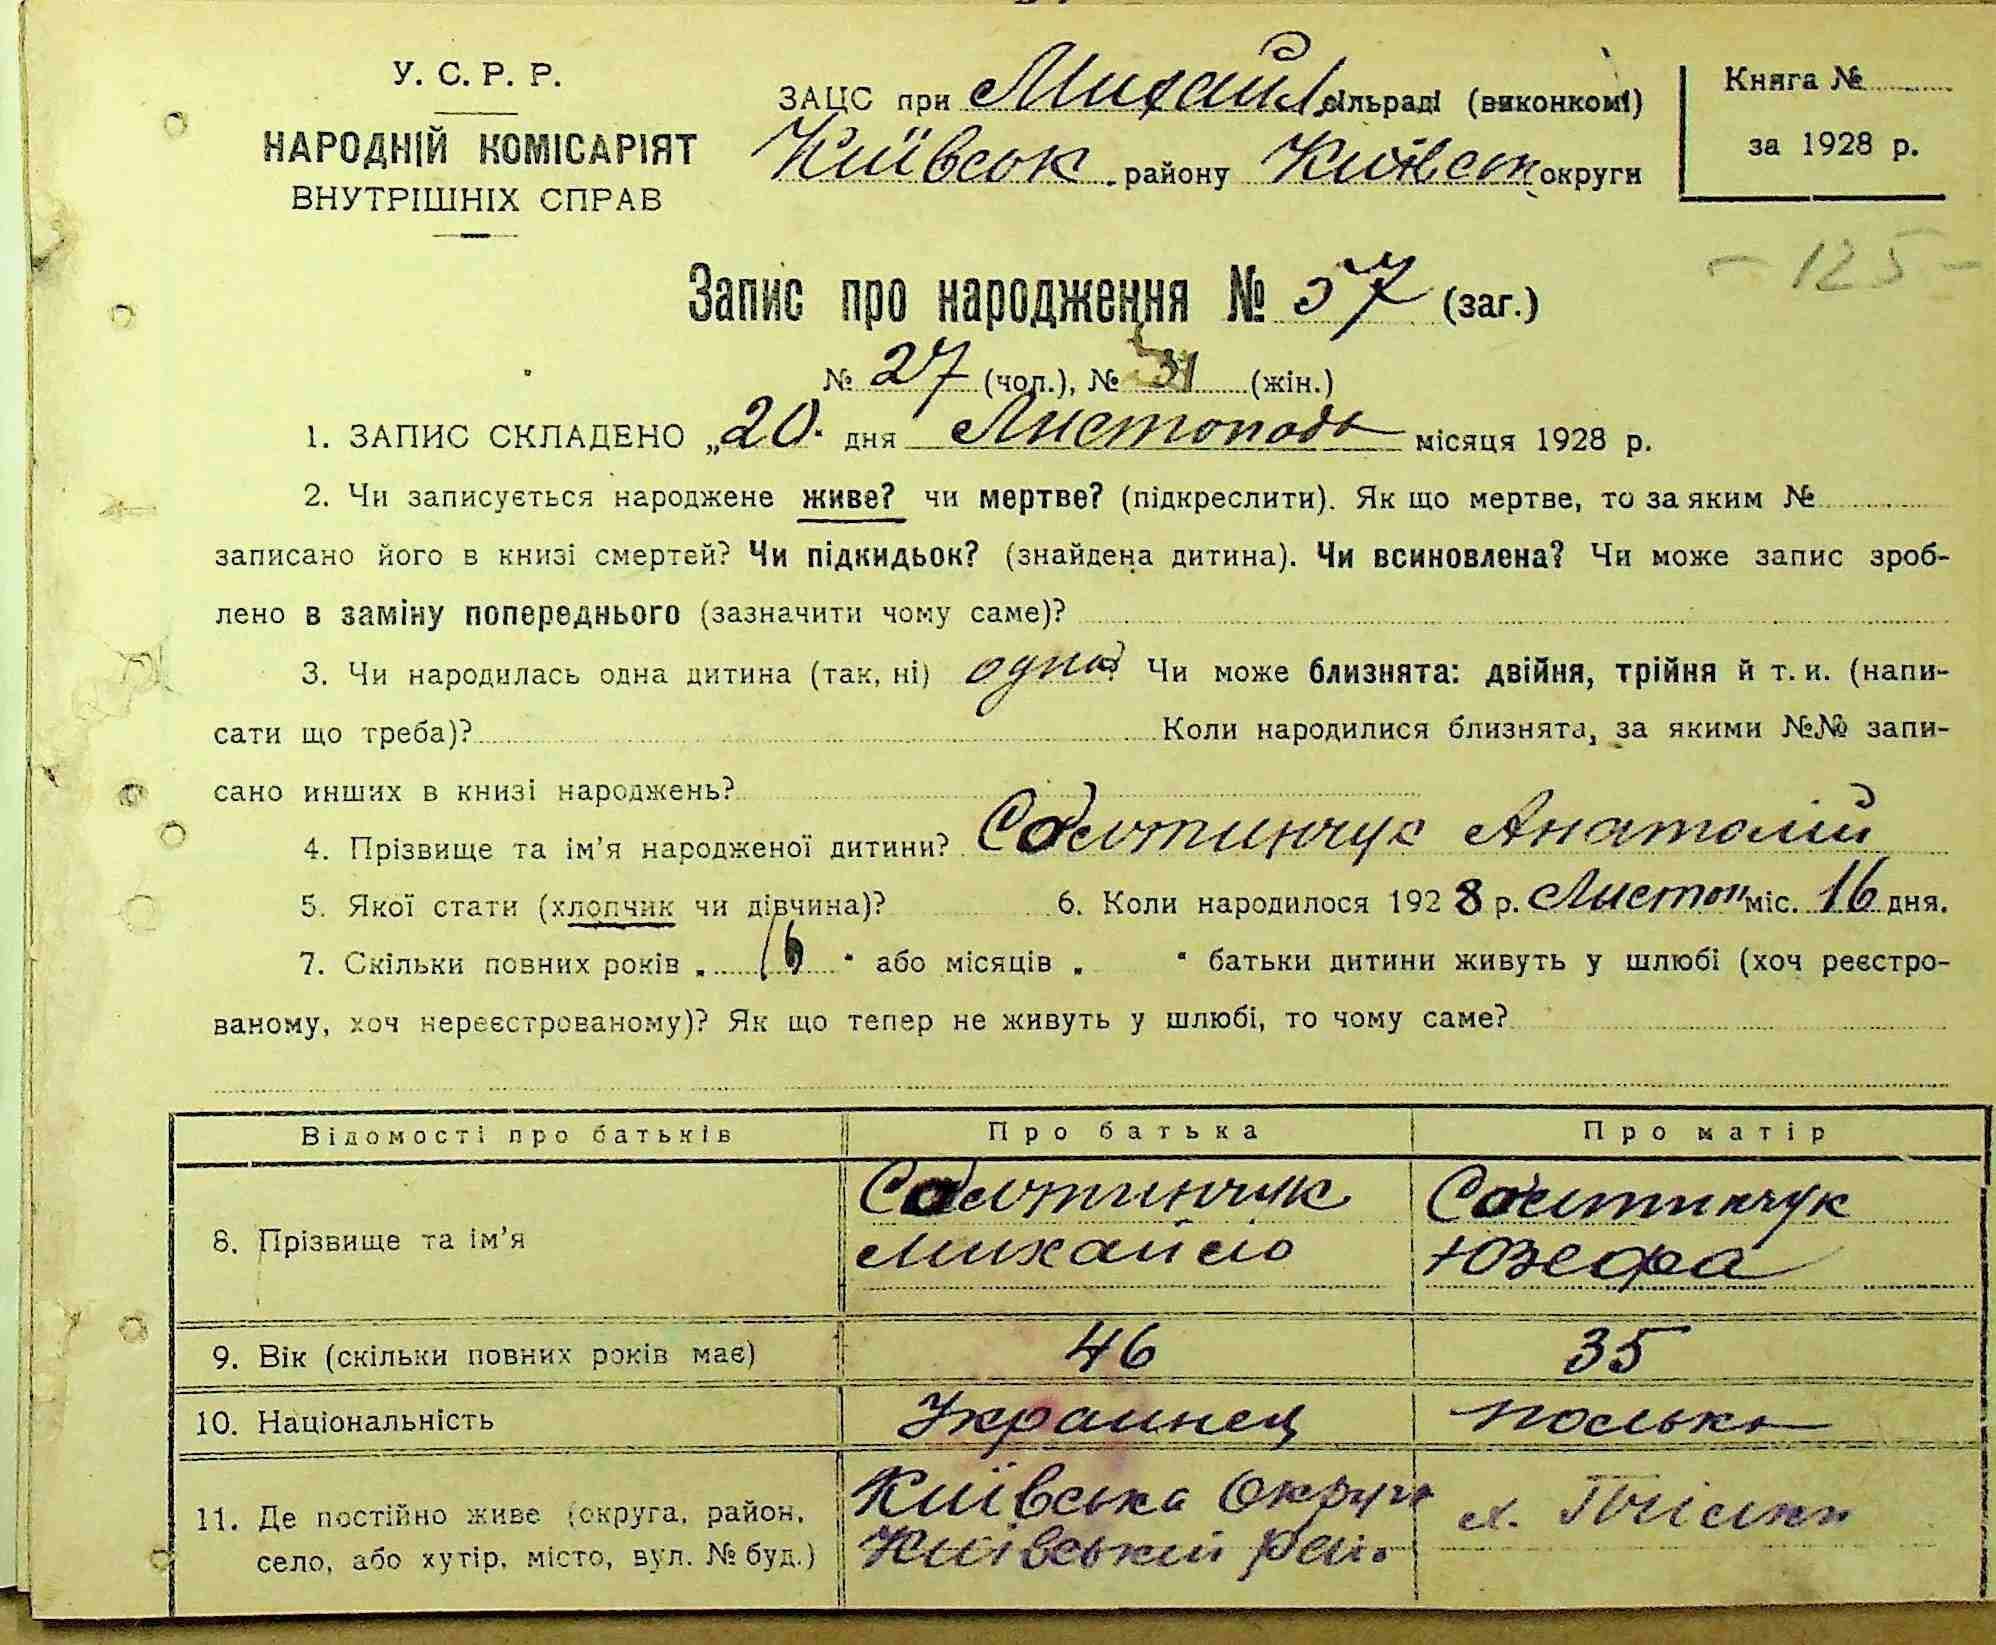 У. С. Р. Р.
НАРОДНІЙ КОМІСАРІЯТ
ВНУТРІШНІХ СПРАВ
ЗАЦС при Михайл. сільраді (виконкомі)
Київськ. району Київськ округи
Книга №
за 1928 р.
- 125 -
Запис про народження № 57 (заг.)
№ 27 (чол.), № 31 (жін.)
1. ЗАПИС СКЛАДЕНО „20. дня Листопада місяця 1928 р.
2. Чи записується народжене живе? чи мертве? (підкреслити). Як що мертве, то за яким №
записано його в книзі смертей? Чи підкидьок? (знайдена дитина). Чи всиновлена? Чи може запис зроб-
лено в заміну попереднього (зазначити чому саме)?
3. Чи народилась одна дитина (так, ні) одна? Чи може близнята: двійня, трійня й т. и. (напи-
сати що треба)? Коли народилися близнята, за якими №№ запи-
сано инших в книзі народжень?
4. Прізвище та ім'я народженої дитини? Анатолій
5. Якої стати (хлопчик чи дівчина)? 6. Коли народилося 1928 р. Листоп міс. 16 дня.
7. Скільки повних років „ 16 " або місяців „ " батьки дитини живуть у шлюбі (хоч реєстро-
ваному, хоч нереєстрованому)? Як що тепер не живуть у шлюбі, то чому саме?
Відомості про батьків Про батька Про матір
8. Прізвище та ім'я Михайло Юзефа
9. Вік (скільки повних років має) 46 35
10. Національність Украинец полька
11. Де постійно живе (округа, район,
село, або хутір, місто, вул. № буд.)
Київська Округа
Київський рай.